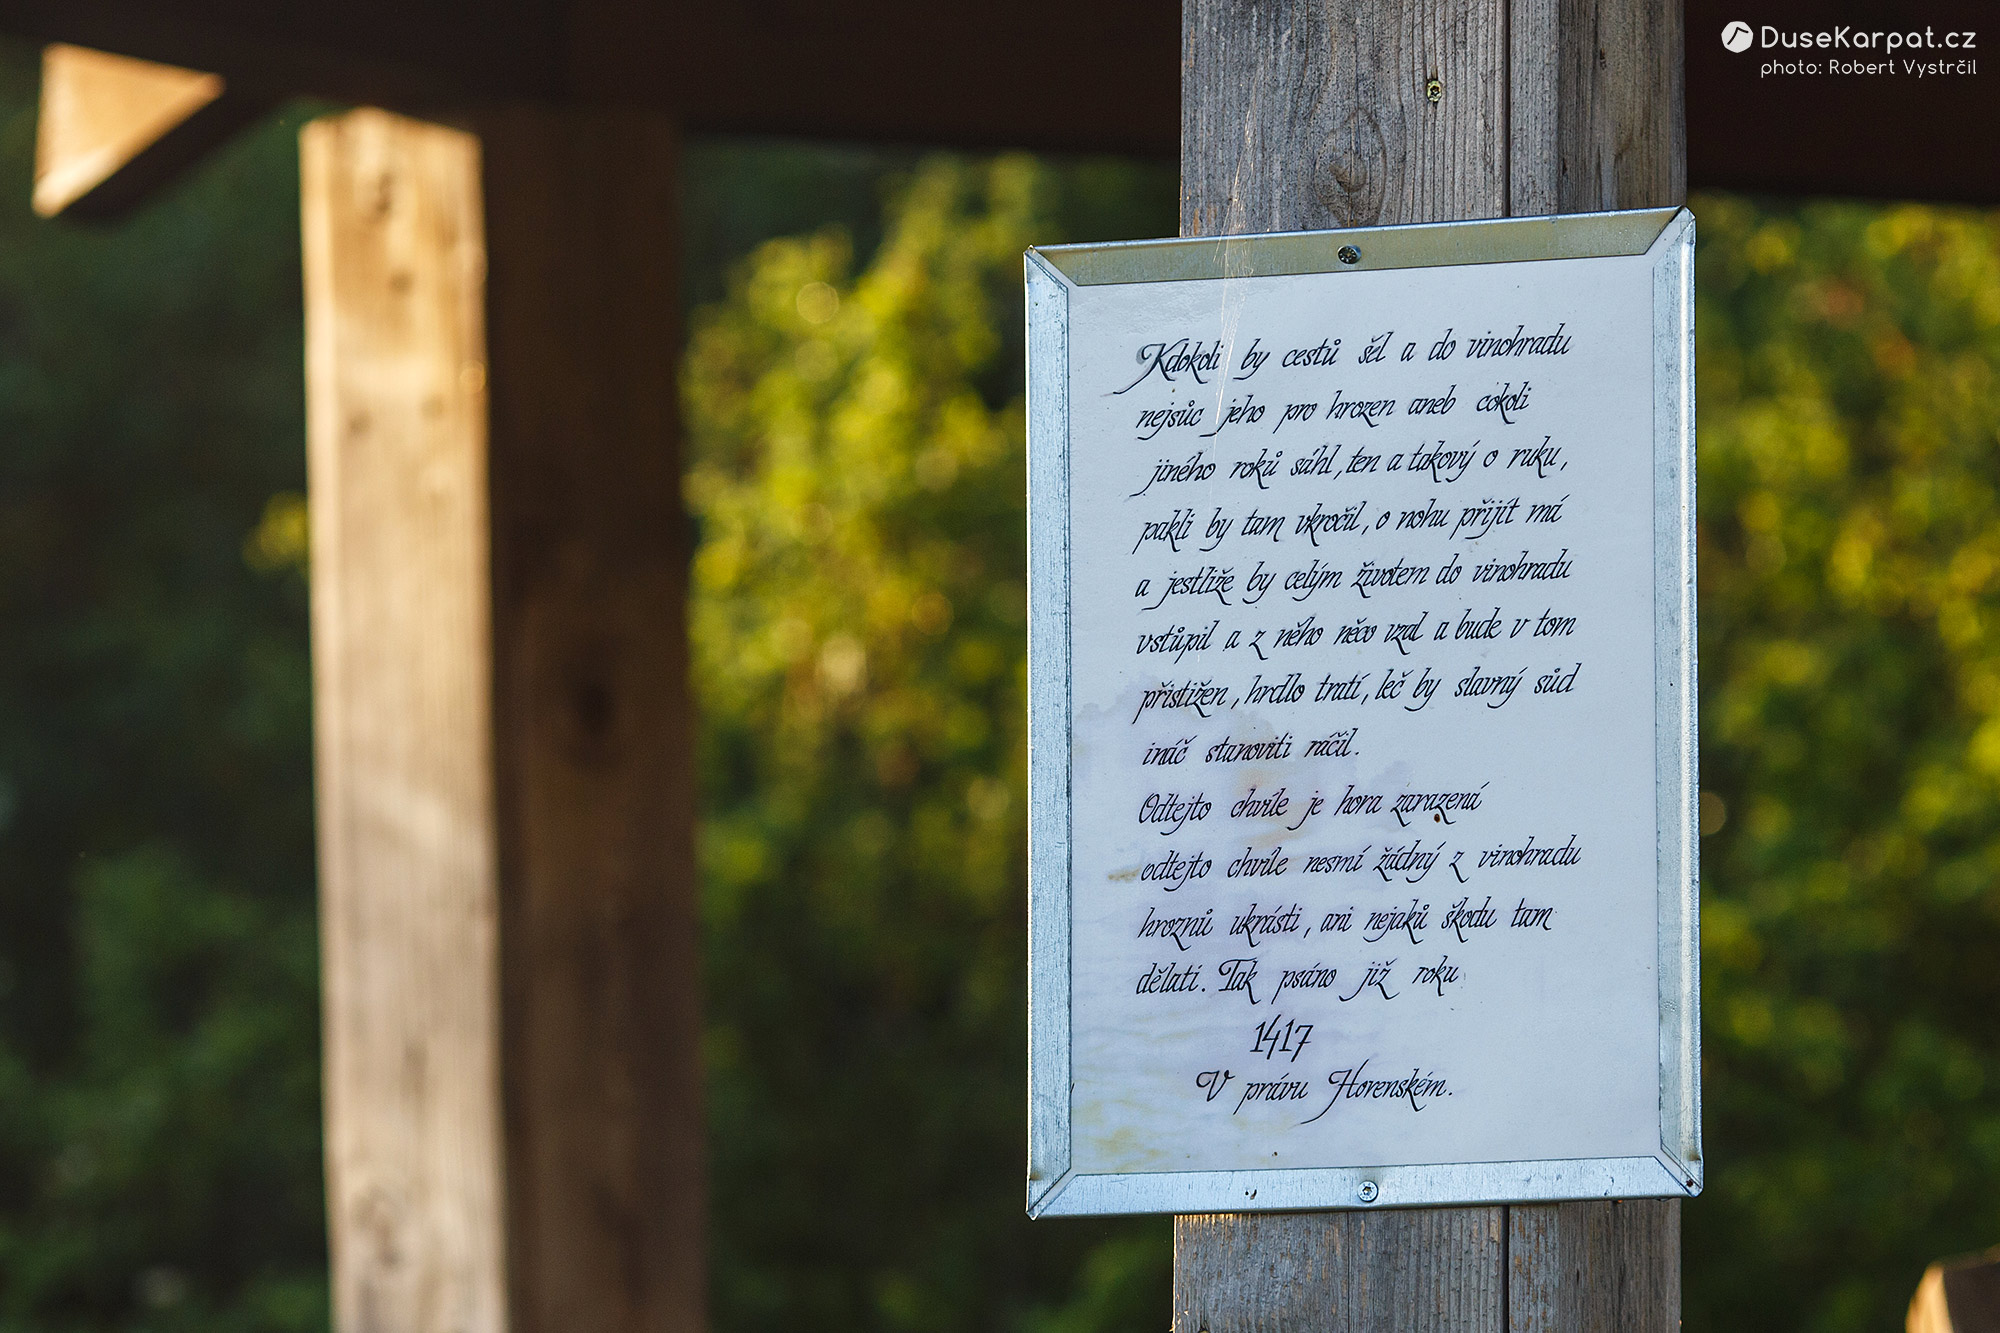 DuseKarpat.cz
photo: Robert Vystrčil
Kdokoli by cestů šel a do vinohradu
nejsůc jeho pro hrozen aneb cokoli
jiného roků sáhl, ten a takový o ruku,
pakli by tam vkročil, o nohu přijít má
a jestliže by celým životem do vinohradu
vstůpil a z něho něco vzal a bude v tom
přistižen, hrdlo tratí, leč by slavný sůd
ináč stanoviti ráčil.
Odtejto chvíle je hora zaražená
odtejto chvíle nesmí žádný z vinohradu
hroznů ukrásti, ani nejaků škodu tam
dělati. Tak psáno již roku
1417
V právu Horenském.